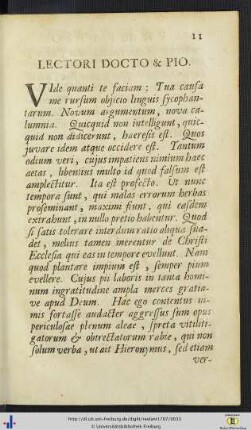 11
LECTORI DOCTO & PIO.
VIde quanti te faciam: Tua causa
me rursum objicio linguis sycophan-
tarum. Novum argumentum, nova ca-
lumnia. Quicquid non intelligunt, quic-
quid non didicerunt, haeresis est. Quos
juvare idem atque occidere est. Tantum
odium veri, cujus impatiens nimium haec
aetas, libentius multo id quod falsum est
amplectitur. Ita est profecto. Ut nunc
tempora sunt, qui malas errorum herbas
proseminant, maximi fiunt, qui easdem
extrahunt, in nullo pretio habentur. Quod
si satis tolerare interdum ratio aliqua sua-
det, melius tamen merentur de Christi
Ecclesia qui eas in tempore evellunt. Nam
quod plantare impium est, semper pium
evellere. Cujus pii laboris in tanta homi-
num ingratitudine ampla merces gratia-
ve apud Deum. Hac ego contentus ni-
mis fortasse audacter aggressus sum opus
periculosae plenum aleae, spreta vitilit-
gatorum & obtrectatorum rabie, qui non
solum verba, ut ait Hieronymus, sed etiam
ver-
© Universitätsbibliothek Freiburg